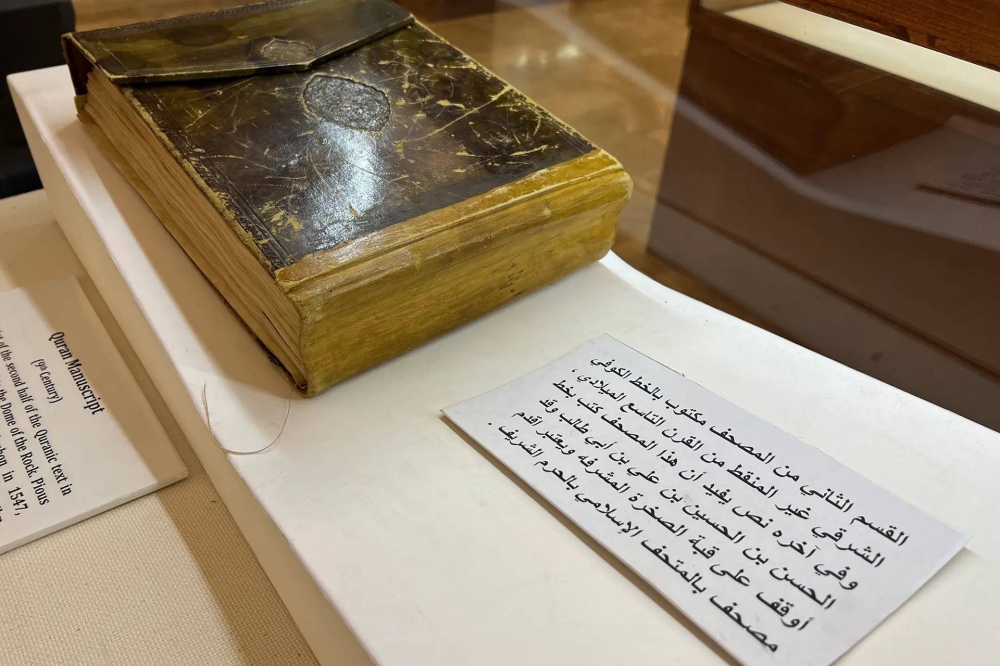 القسم الثاني من المصحف مكتوب بالخط الكوفي
الشرقي غير المنقط من القرن التاسع الميلادي ،
وفي آخره نص يفيد أن هذا المصحف كتب بخط
الحسن بن الحسين بن علي بن أبي طالب وقد
أوقف على قبة الصخرة المشرفه ويعتبر أقدم
مصحف بالمتحف الإسلامي بالحرم الشريف .
Quran Manuscript
(9th Century)
of the second half of the Quranic text in
the Dome of the Rock. Pious
in 1547,